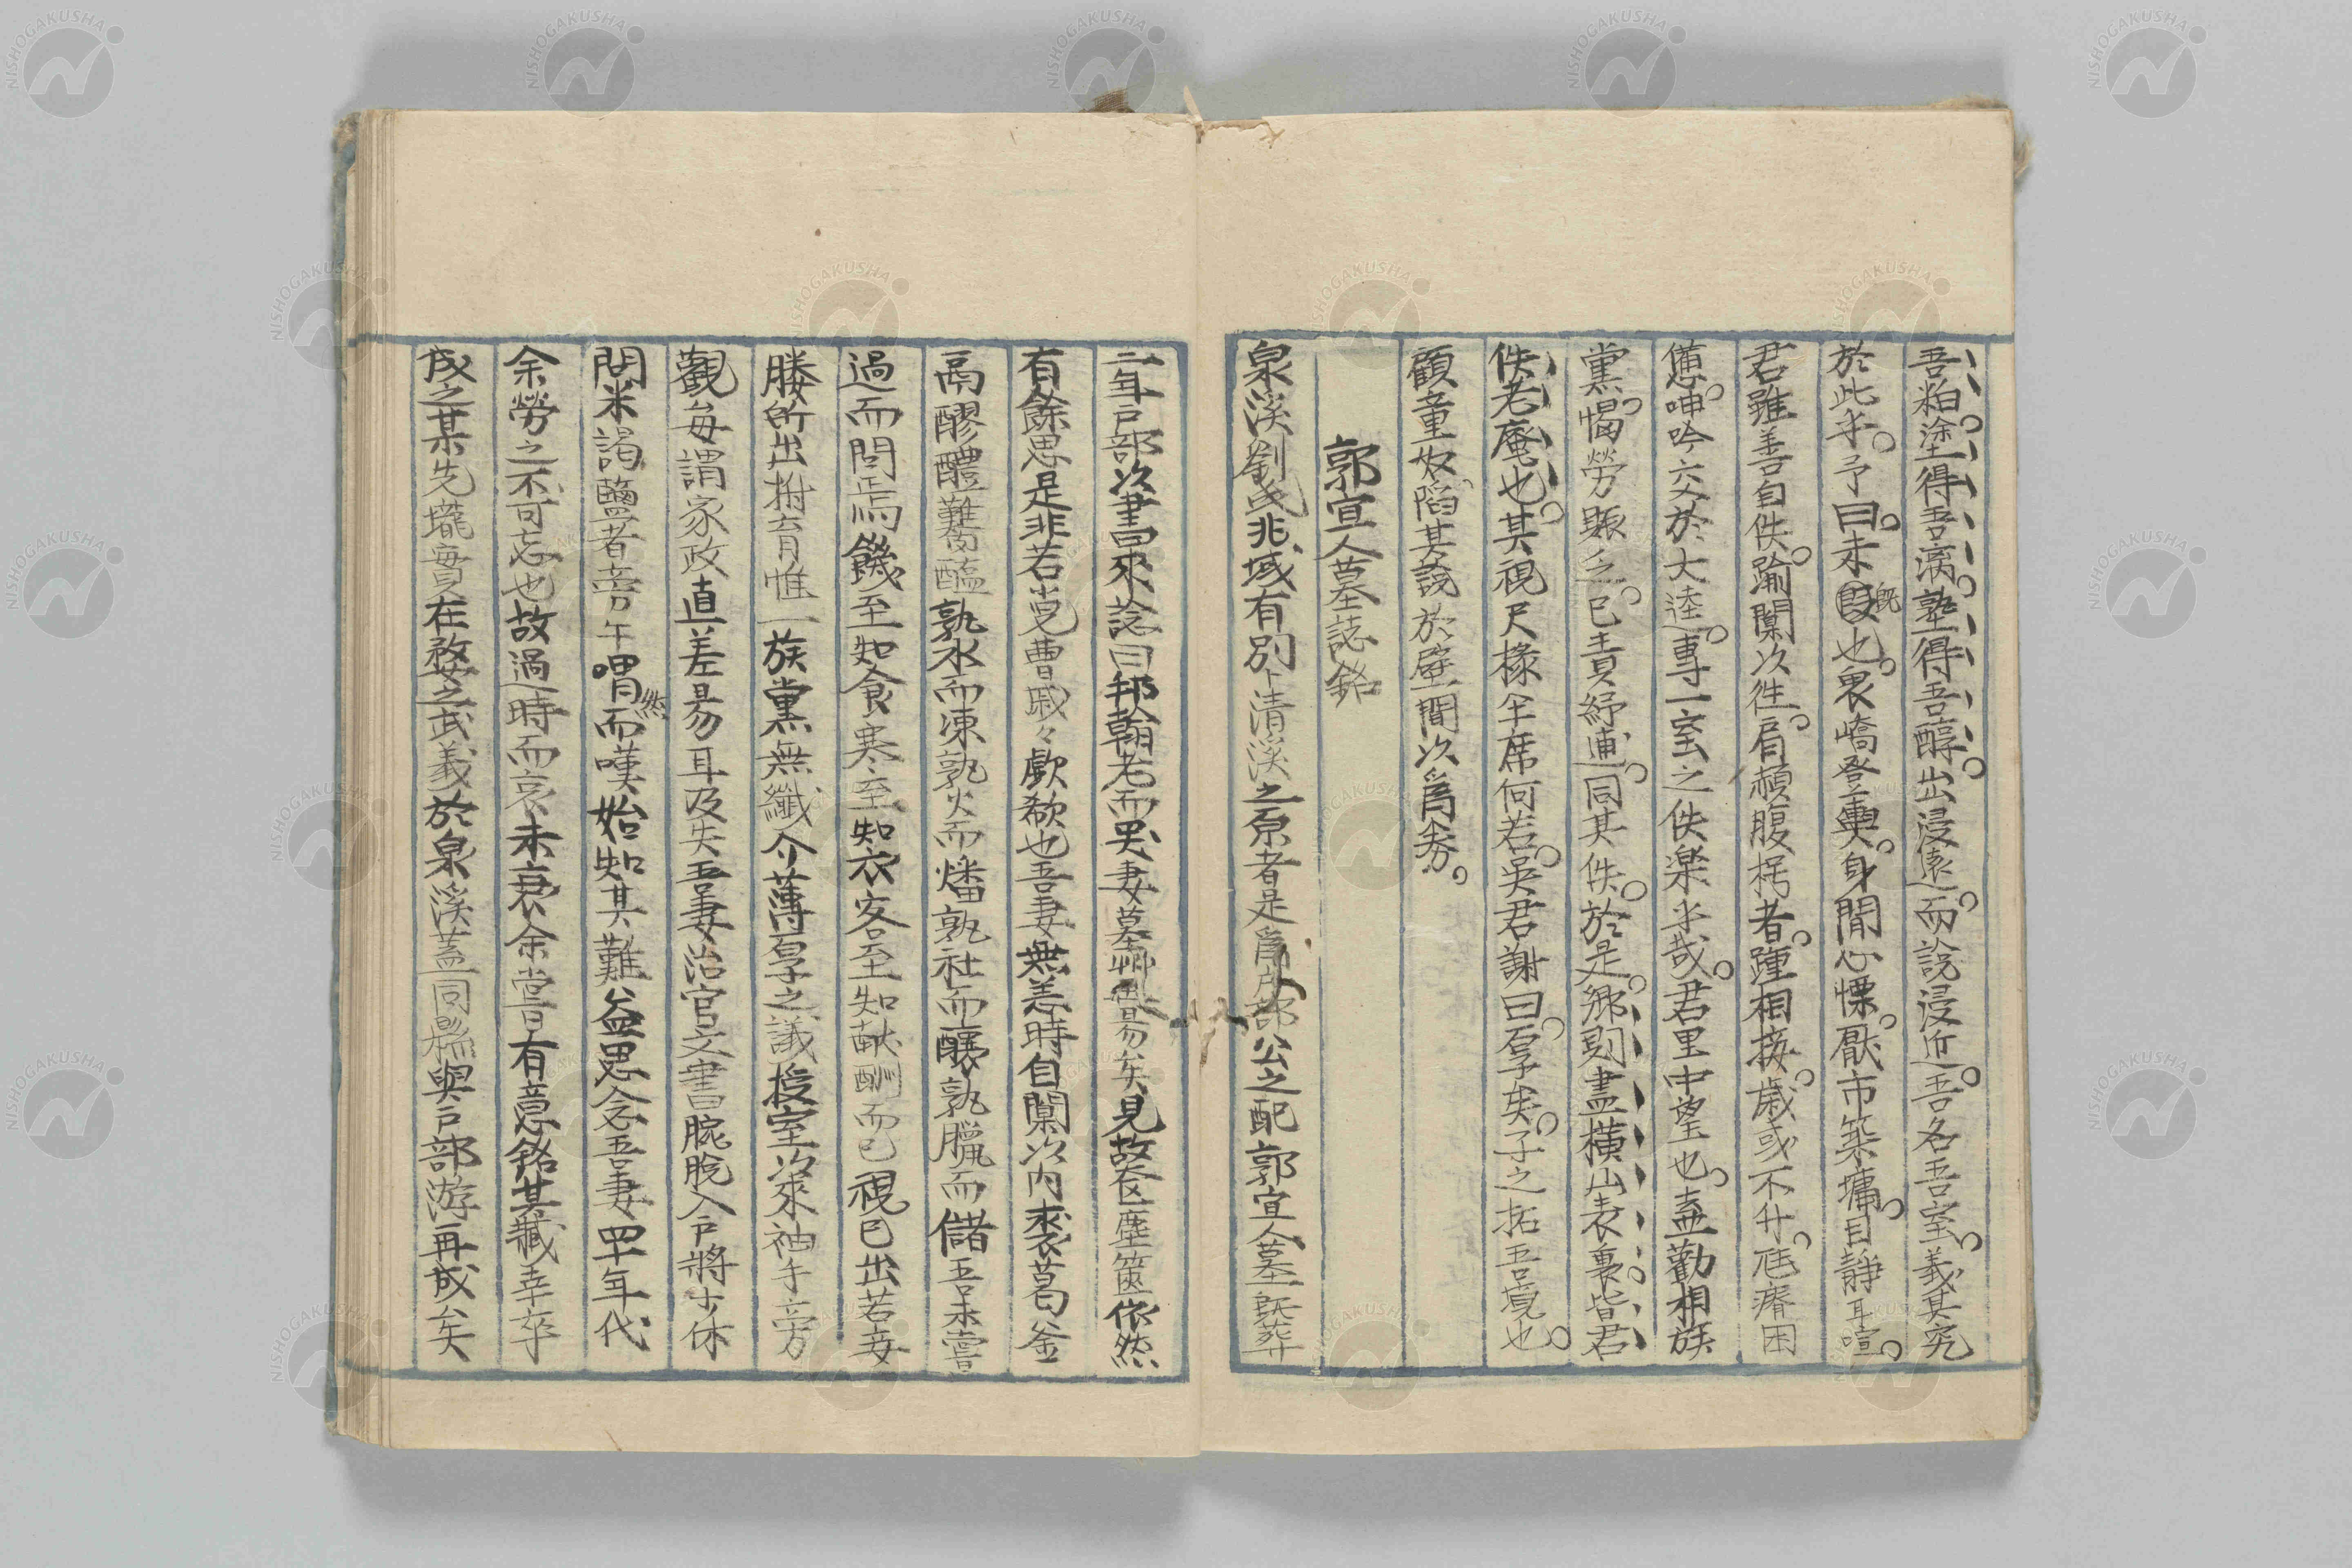 吾粕塗得吾漓塾得吾醇出浸遠而說浸近吾名吾室義其究
於此乎予曰未既也畏嶠登輿身閒心慄厭市築墉目靜耳喧
君雖善自佚踰闑次徃肩頳腹枵者踵相接歲或不升尫瘠困
憊呻吟六交於大逵專一室之佚楽乎哉君里中望也盍勸相族
黨愒勞賑乏已責紓逋同其佚於是鄉則盡橫山表裏皆君
佚老庵也其視尺椽半席何若吳君謝曰厚矣子之拓吾境也
顧童奴陷其說於壁間次爲券
郭宜人墓誌銘
泉溪劉氏兆域有別卜清溪之原者是爲戶部公之配郭宜人墓既葬
二年戶部次書來諗曰邦翰老而哭妻墓艸再易矣見故奩塵篋依然
有餘思是非若兒曹戚々歔欷也吾妻無恙時自闑以內裘葛釜
鬲醪醴難芻醢孰水而凍孰火而燔孰社而釀孰臘而儲吾未嘗
過而問焉饑至知食寒至知衣客至知献酬而已視已出若妾
媵所出拊育惟一族黨無纖介薄厚之議授室次來袖手旁
觀每謂家政直差易耳及失吾妻治官文書腕脫入戶將少休
問米謁鹽者旁午喟然而嘆始知其難益思念吾妻四十年代
余勞之不可忘也故過時而哀未衰余嘗有意銘其藏幸卒
成之某先壠實在婺之武義於泉溪蓋同縣與戶部游再成矣
NISHOGAKUSHA